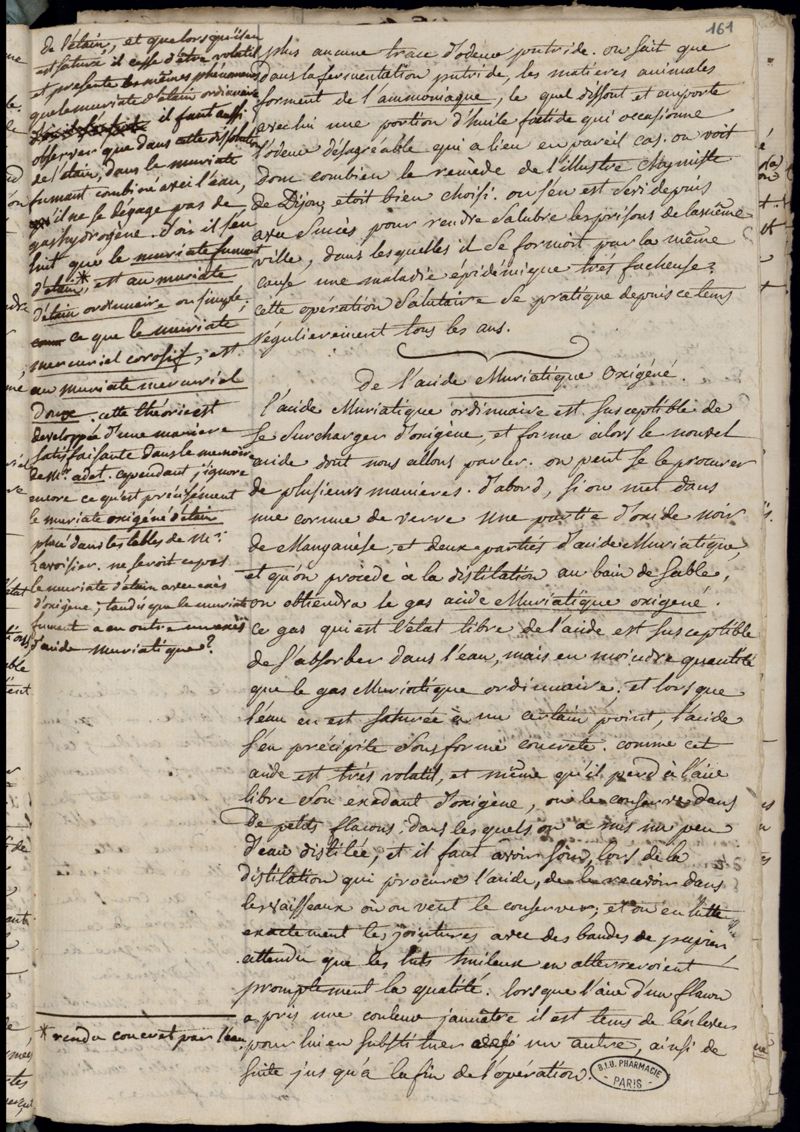 161
de l'étain, et que lorsqu'il en
est saturé il cesse d'être volatil
et présente les mêmes phenomenes
que le muriate d'étain ordinaire
il faut aussi
observer que dans cette dissolution
de l'étain, dans le muriate
fumant combiné avec l'eau,
il ne se dégage pas de
gas hydrogène. d'où il s'en
suit que le muriate fumant
d'étain*, est au muriate
d'étain ordinaire ou simple,
ce que le muriate
mercuriel corosif, est
au muriate mercuriel
doux. cette théorie est
developpée d'une maniere
satisfaisante dans le memoire
de Mr. adet. cependant j'ignore
encore ce qu'est précisément
le muriate oxigéné d'étain
placé dans les tables de Mr.
Lavoisier. ne seroit ce pas
le muriate d'étain avec excès
d'oxigene; tandis que le muriate
fumant a en outre un excès
d'acide muriatique?
* rendu concret par l'eau
plus aucune trace d'odeur putride. on sait que
dans la fermentation putride, les matieres animales
forment de l'ammoniaque, le quel dissout et emporte
avec lui une portion d'huile foetide qui occasionne
l'odeur désagréable qui a lieu en pareil cas. on voit
donc combien le remède de l'illustre chymiste
de Dijon étoit bien choisi. on s'en est servi depuis
avec succès pour rendre salubre les prisons de la même
ville, dans les quelles il se formoit par la même
cause une maladie épidémique très facheuse:
cette opération salutaire se pratique depuis ce tems
régulierement tous les ans.
De l'acide Muriatique Oxigéné.
l'acide Muriatique ordinnaire est susceptible de
se surcharger d'oxigène, et forme alors le nouvel
acide dont nous allons parler. on peut se le procurer
de plusieurs manieres. d'abord, si on met dans
une cornue de verre une partie d'oxide noir
de Manganèse, et deux parties d'acide Muriatique,
et qu'on procède à la distilation au bain de sable,
on obtiendra le gas acide Muriatique oxigené.
ce gas qui est l'état libre de l'acide est susceptible
de s'absorber dans l'eau, mais en moindre quantité
que le gas Muriatique ordinnaire. et lorsque
l'eau en est saturée à un certain point, l'acide
s'en précipite sous forme concrete. comme cet
acide est très volatil, et même qu'il perd à l'air
libre son excédant d'oxigène, on le conserve dans
de petits flacons, dans les quels on a mis un peu
d'eau distilée, et il faut avoir soin, lors de la
distilation qui procure l'acide, de le recevoir dans
les vaisseaux où on veut le conserver; et on en lutte
exactement les jointures avec des bandes de papier
attendu que les luts huileux en altereroient
promptement la qualité. lorsque l'air d'un flacon
a pris une couleur jaunâtre il est tems de l'enlever
pour lui en substituer un autre, ainsi de
suite jusqu'à la fin de l'opération.
B.I.U. PHARMACIE
PARIS